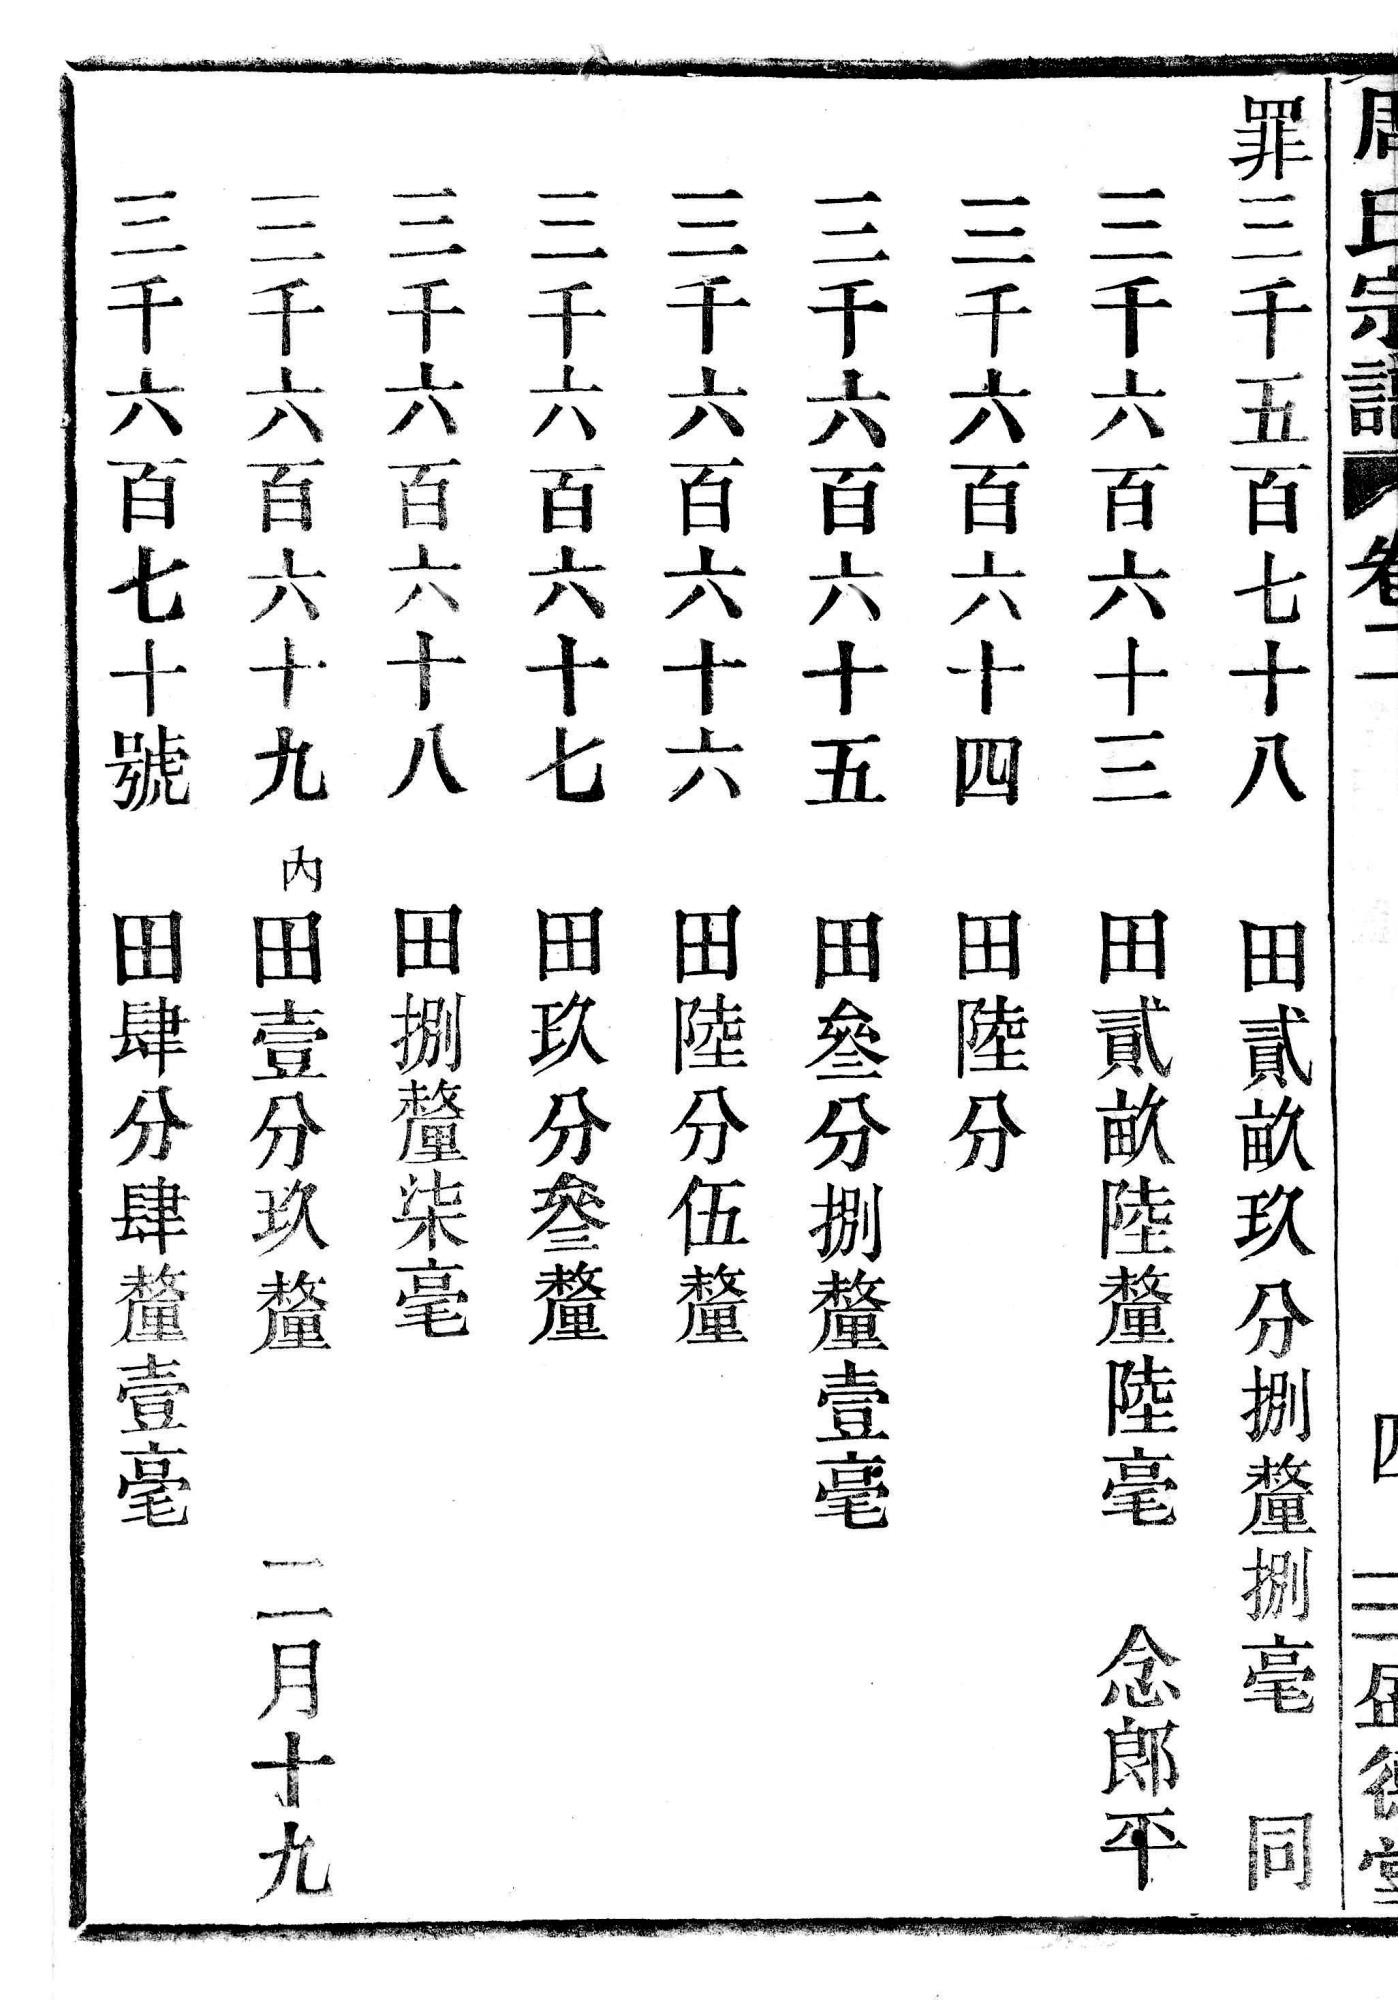 周氏宗譜 卷二 四 盛德堂
罪三千五百七十八 田貳畝玖分捌釐捌毫 同
三千六百六十三 田貳畝陸釐陸毫 念郎平
三千六百六十四 田陸分
三千六百六十五 田叄分捌釐壹毫
三千六百六十六 田陸分伍釐
三千六百六十七 田玖分叄釐
三千六百六十八 田捌釐柒毫
三千六百六十九 內田壹分玖釐 二月十九
三千六百七十號 田肆分肆釐壹毫